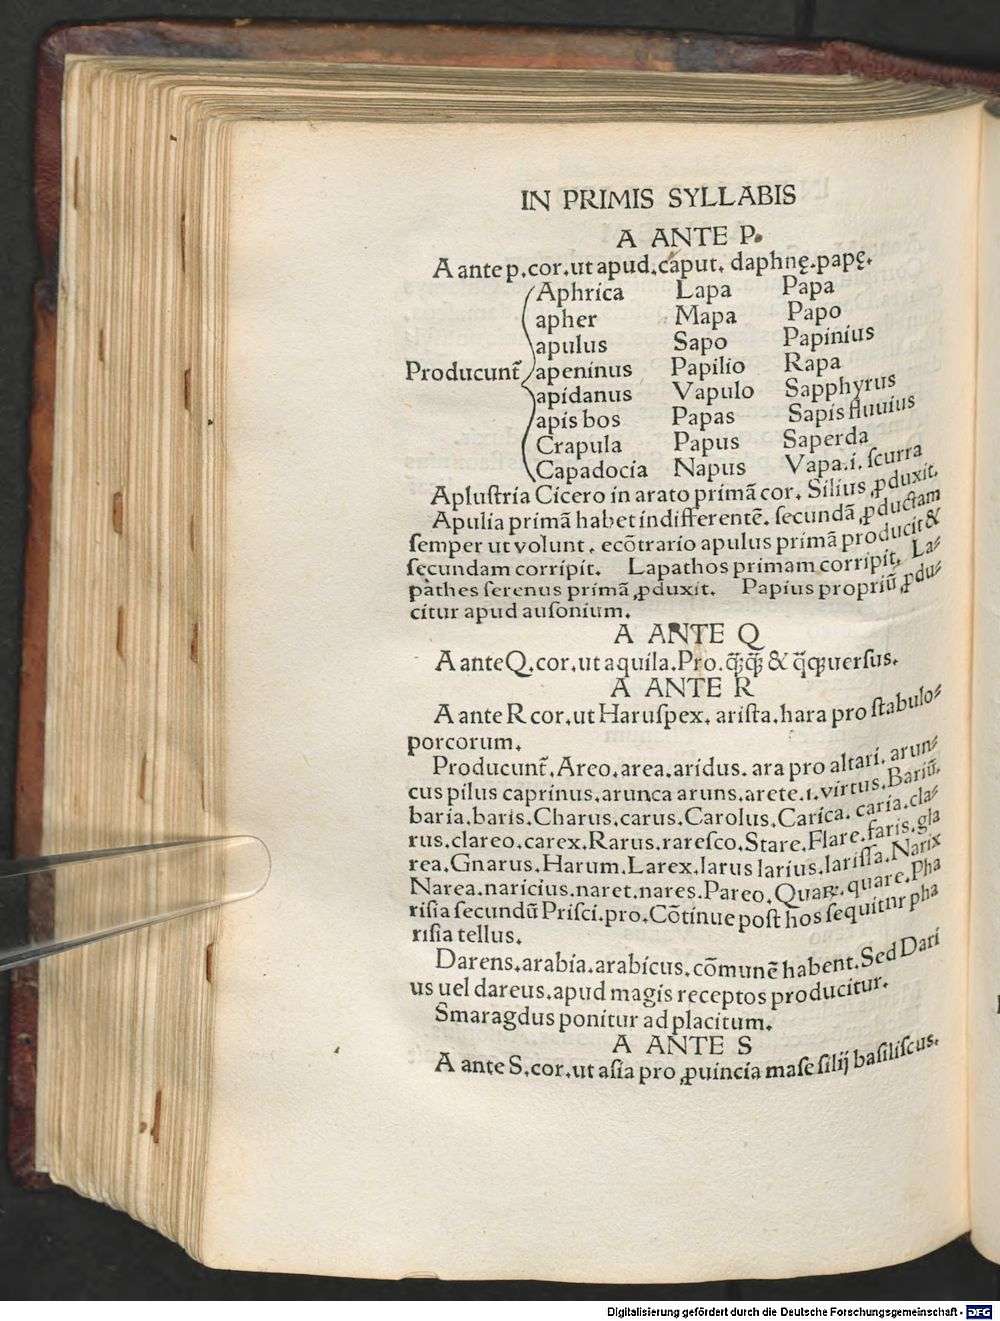 IN PRIMIS SYLLABIS
A ANTE P.
A ante p.cor.ut apud.caput. daphnę.papę.
Aphrica Lapa Papa
apher Mapa Papo
apulus Sapo Papinius
Producunt̃ apeninus Papilio Rapa
apidanus Vapulo Sapphyrus
apis bos Papas Sapis fluuius
Crapula Papus Saperda
Capadocia Napus Vapa.i. scurra
Aplustria Cicero in arato primã cor. Silius ꝓduxit.
Apulia primã habet indifferentẽ. secundã ꝓductam
semper ut volunt. ecõtrario apulus primã producit &
secundam corripit. Lapathos primam corripit. La⸗
pathes serenus primã ꝓduxit. Papius propriũ ꝓdu⸗
citur apud ausonium.
A ANTE Q
A ante Q.cor.ut aquila.Pro. & uersus.
A ANTE R
A ante R cor.ut Haruspex. arista.hara pro stabulo⸗
porcorum.
Producunt̃.Areo.area.aridus. ara pro altari. arun⸗
cus pilus caprinus.arunca aruns.arete.i.virtus.Bariũ.
baria.baris.Charus.carus.Carolus.Carica. caria.cla⸗
rus.clareo.carex.Rarus.raresco.Stare.Flare.faris.gla
rea.Gnarus.Harum.Larex.larus larius.larissa.Narix
Narea.naricius.naret.nares.Pareo.Quaꝝ.quare.Pha
risia secundũ Prisci.pro.Cõtinue post hos sequitnr pha
risia tellus.
Darens.arabia.arabicus.cõmunẽ habent.Sed Dari
us uel dareus.apud magis receptos producitur.
Smaragdus ponitur ad placitum.
A ANTE S
A ante S.cor.ut asia pro ꝓuincia mase silij basiliscus.
Digitalisierung gefördert durch die Deutsche Forschungsgemeinschaft - DFG